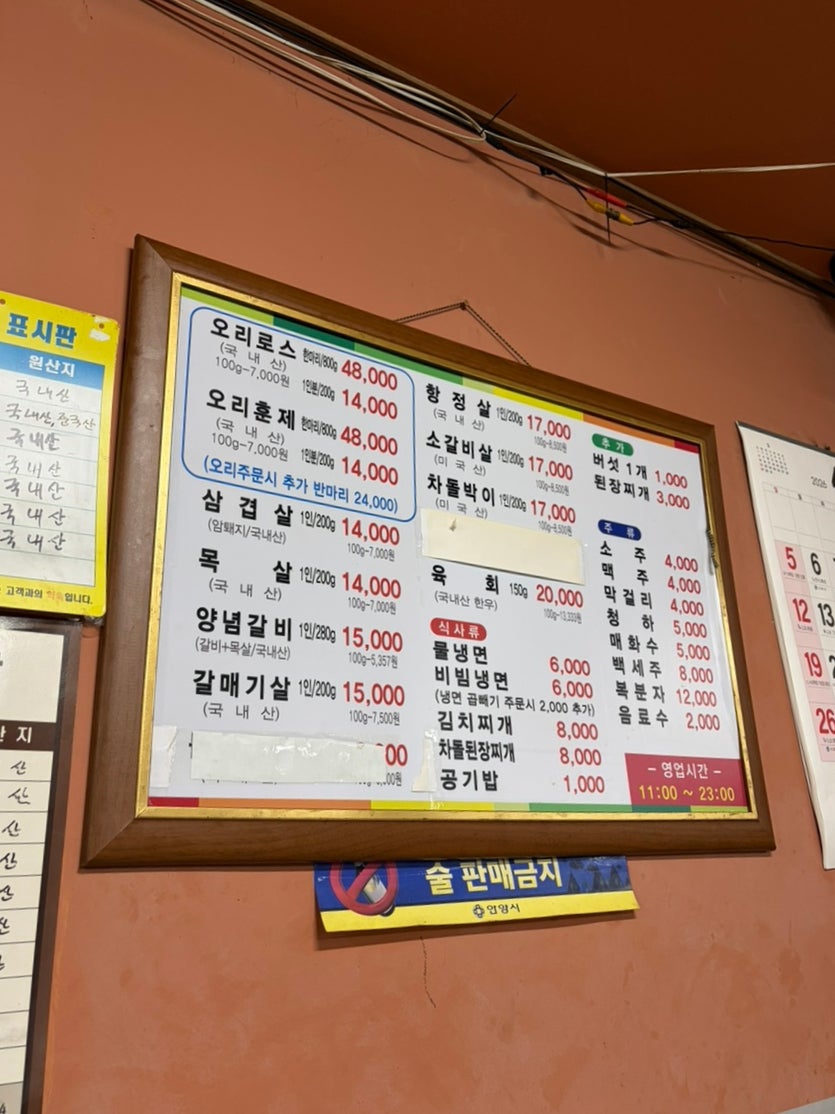 표시판
원산지
국내산
국내산, 중국산
국내산
국내산
국내산
국내산
국내산
고객과의 약속입니다.
오리로스 한마리/800g 48,000
(국내산)
100g-7,000원 1인분/200g 14,000
오리훈제 한마리/800g 48,000
(국내산)
100g-7,000원 1인분/200g 14,000
(오리주문시 추가 반마리 24,000)
삼겹살 1인/200g 14,000
(암퇘지/국내산) 100g-7,000원
목살 1인/200g 14,000
(국내산) 100g-7,000원
양념갈비 1인/280g 15,000
(갈비+목살/국내산) 100g-5,357원
갈매기살 1인/200g 15,000
(국내산) 100g-7,500원
항정살 1인/200g 17,000
(국내산) 100g-8,500원
소갈비살 1인/200g 17,000
(미국산) 100g-8,500원
차돌박이 1인/200g 17,000
(미국산) 100g-8,500원
육회 150g 20,000
(국내산 한우) 100g-13,333원
식사류
물냉면 6,000
비빔냉면 6,000
(냉면 곱빼기 주문시 2,000 추가)
김치찌개 8,000
차돌된장찌개 8,000
공기밥 1,000
추가
버섯 1개 1,000
된장찌개 3,000
주류
소주 4,000
맥주 4,000
막걸리 4,000
청하 5,000
매화수 5,000
백세주 8,000
복분자 12,000
음료수 2,000
- 영업시간 -
11:00 ~ 23:00
술 판매금지
안양시
2026
5 6
12 13
19
26
산
산
산
산
산
산